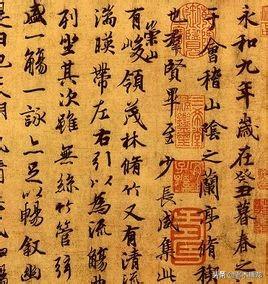 永和九年歲在癸丑暮春之
于會稽山陰之蘭亭脩稧
也羣賢畢至少長咸集此
崇山
有峻領茂林脩竹又有清流
湍暎帶左右引以為流觴曲
列坐其次雖無絲竹管弦
盛一觴一詠亦足以暢敘幽